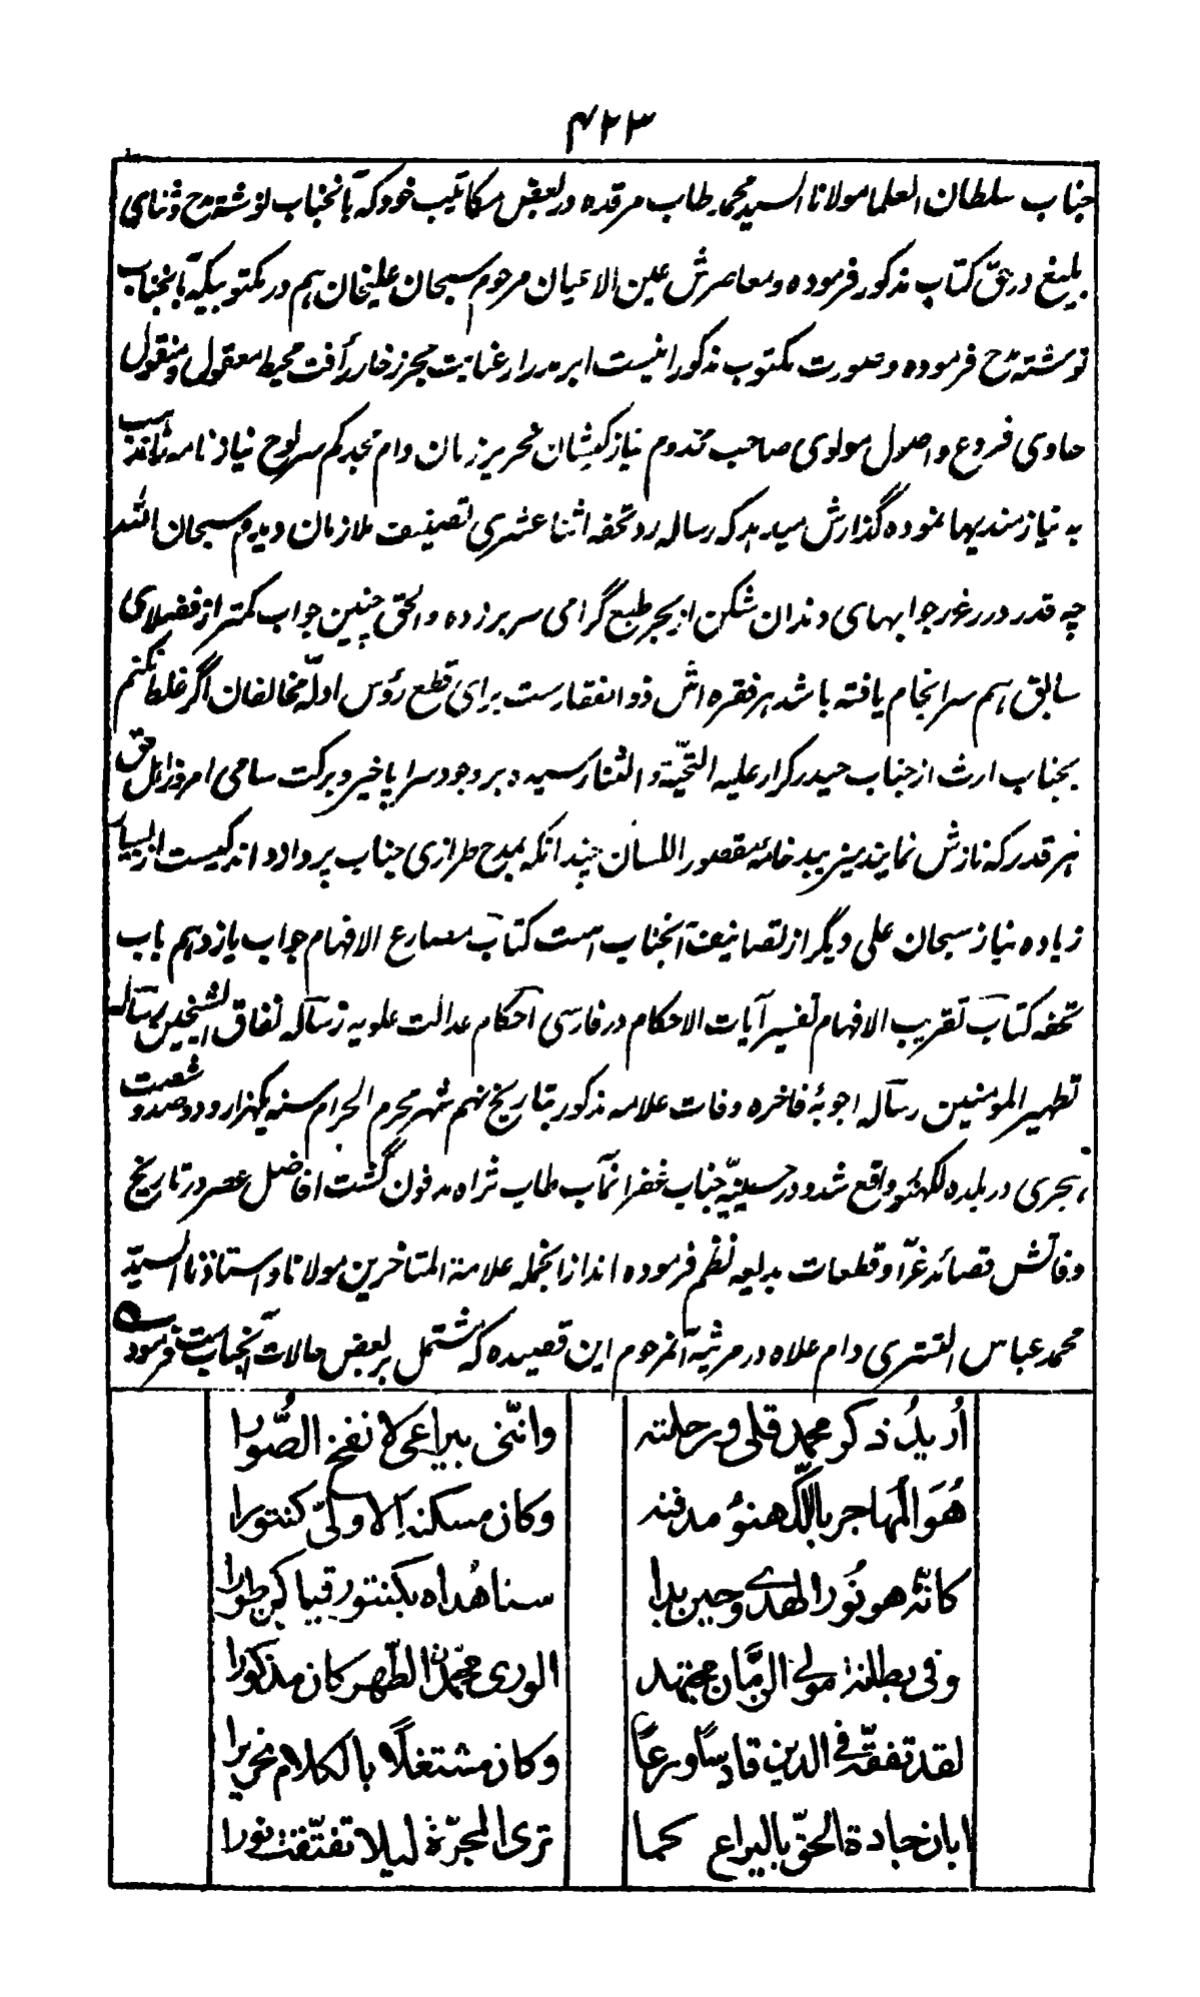 ۴۲۳
جناب سلطان العلما مولانا السید محمد طاب مرقده در بعض مکاتیب خود که بآنجناب نوشته مدح و ثنای
بلیغ در حق کتاب مذکور فرموده و معاصرش عین الاعیان مرحوم سبحان علیخان هم در مکتوبیکه بآنجناب
نوشته مدح فرموده و صورت مکتوب مذکور اینست ابر مدرار عنایت بحر زخار رأفت محیط معقول و منقول
حاوی فروع و اصول مولوی صاحب مخدوم نیازکیشان نحریر زمان دام مجدکم سرلوح نیازنامه
به نیازمندیها نموده گذارش میدهد که رساله رد تحفه اثنا عشری تصنیف ملازمان دیدم سبحان الله
چه قدر درر غرر جوابهای دندان شکن از بحر طبع گرامی سر برزده و الحق چنین جواب کمتر از فضلای
سابق هم سرانجام یافته باشد هر فقره اش ذوالفقاریست برای قطع رؤس ادلّه مخالفان اگر غلط نکنم
بجناب ارث از جناب حیدر کرار علیه التحیّة و الثنا رسیده بر وجود سراپا خیر و برکت سامی امروز اهل حق
هر قدر که نازش نمایند میزیبد خامه مقصور اللسان چندانکه بمدح طرازی جناب پردازد اندکیست از بسیار
زیاده نیاز سبحان علی دیگر از تصانیف آنجناب است کتاب مصارع الافهام جواب یازدهم باب
تحفه کتاب تقریب الافهام تفسیر آیات الاحکام در فارسی احکام عدالت علویه رساله نفاق الشیخین رساله
تطهیر المؤمنین رساله اجوبهٔ فاخره وفات علامه مذکور بتاریخ نهم شهر محرم الحرام سنه یکهزار و دوصد و شصت
هجری در بلده لکهنؤ واقع شد و در حسینیّه جناب غفرانمآب طاب ثراه مدفون گشت افاضل عصر در تاریخ
وفاتش قصائد غرّا و قطعات بدیعه نظم فرموده اند ازانجمله علامة المتاخرین مولانا و استاذنا السیّد
محمد عباس التستری دام علاه در مرثیهٔ آنمرحوم این قصیده که مشتمل بر بعض حالات آنجناب ست فرموده
اُریدُ ذکر محمد قلی و رحلته وانّنی بیراعی لا نفخ الصُّورا
هُوَ المُهاجر باللّکهنوُ مدفنه وکان مسکنه الاولی کنتورا
کانّه هو نُور الهدے وحین بدا سنا هُداه بکنتور قیاکن طورا
وفی بطانة مولی الزّمان مجتهد الوری محمّدن الطّهر کان مذکورا
لقد تفقّه فی الدین قادسًا ورعًا وکان مشتغلًا بالکلام نحریرا
ابان جادة الحقّ بالیراع کما تری المجرّة لیلا تفتّقت نورا